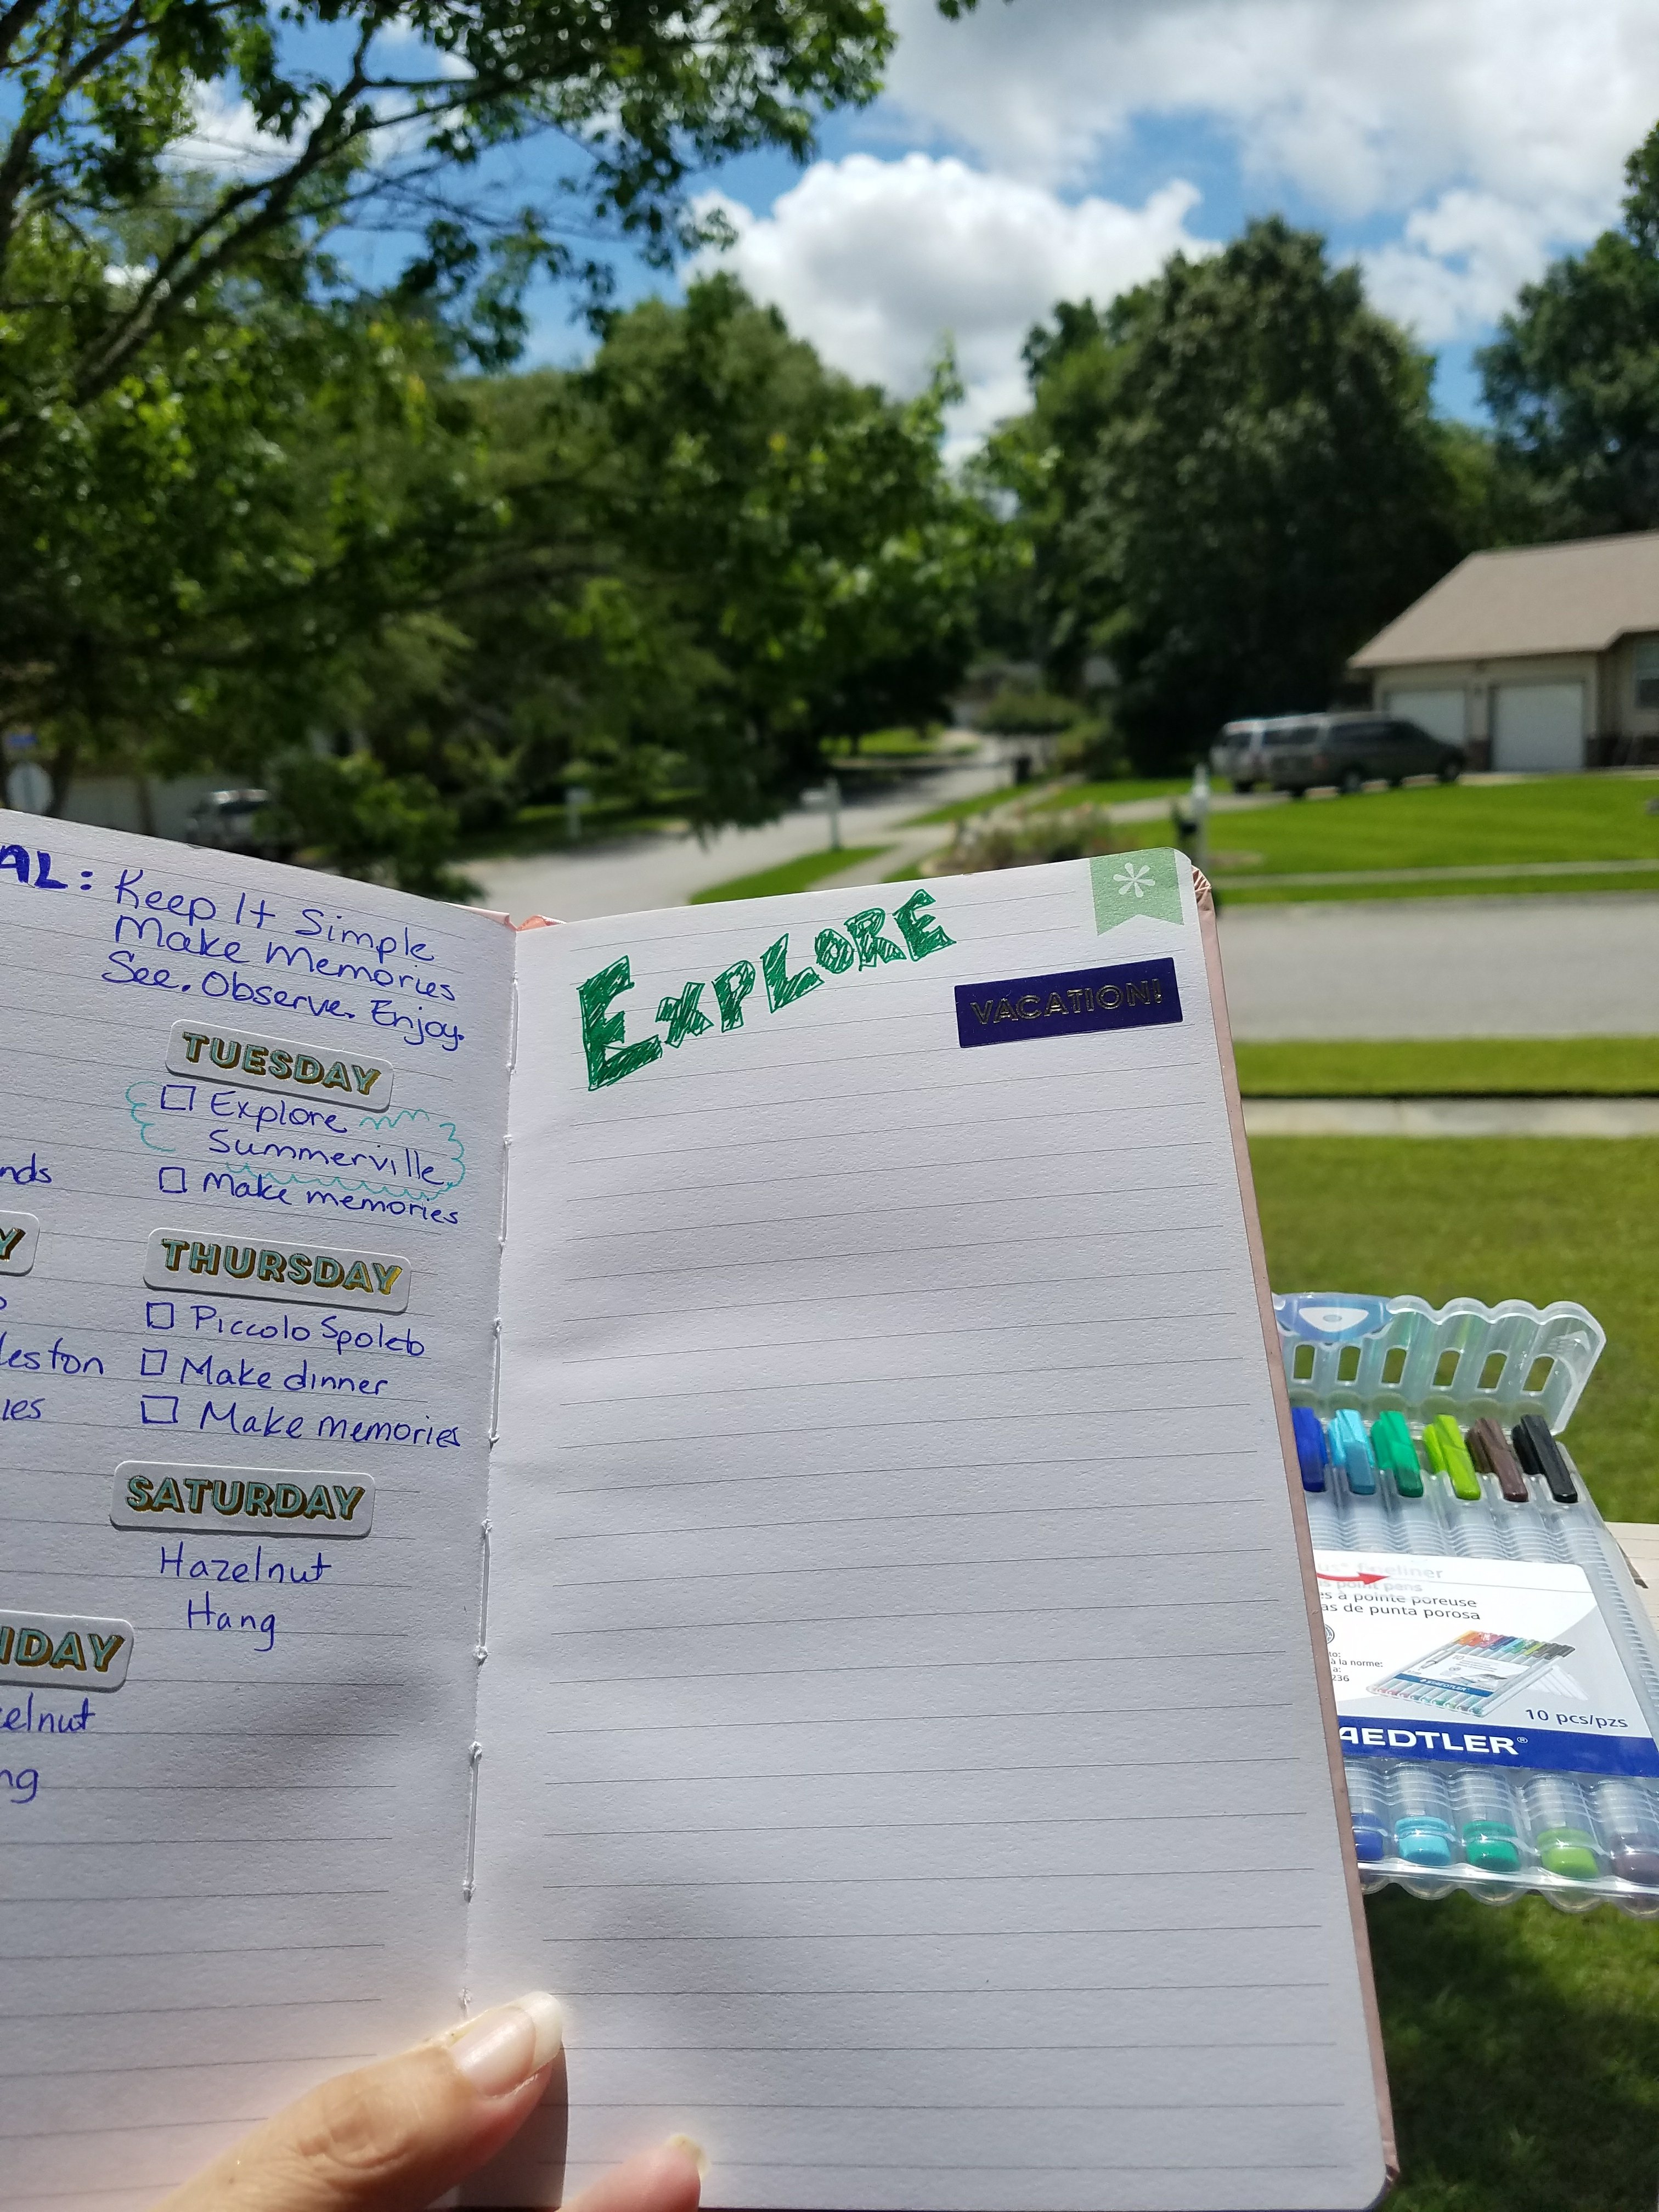 AL: Keep It Simple
Make Memories
See. Observe. Enjoy.
TUESDAY
Explore
Summerville
Make memories
nds
Y
THURSDAY
Piccolo Spoleto
leston
Make dinner
ies
Make memories
SATURDAY
Hazelnut
Hang
IDAY
elnut
ng
EXPLORE
VACATION!
fineliner
point pens
es à pointe poreuse
as de punta porosa
to:
à la norme:
a:
236
10 pcs/pzs
AEDTLER®